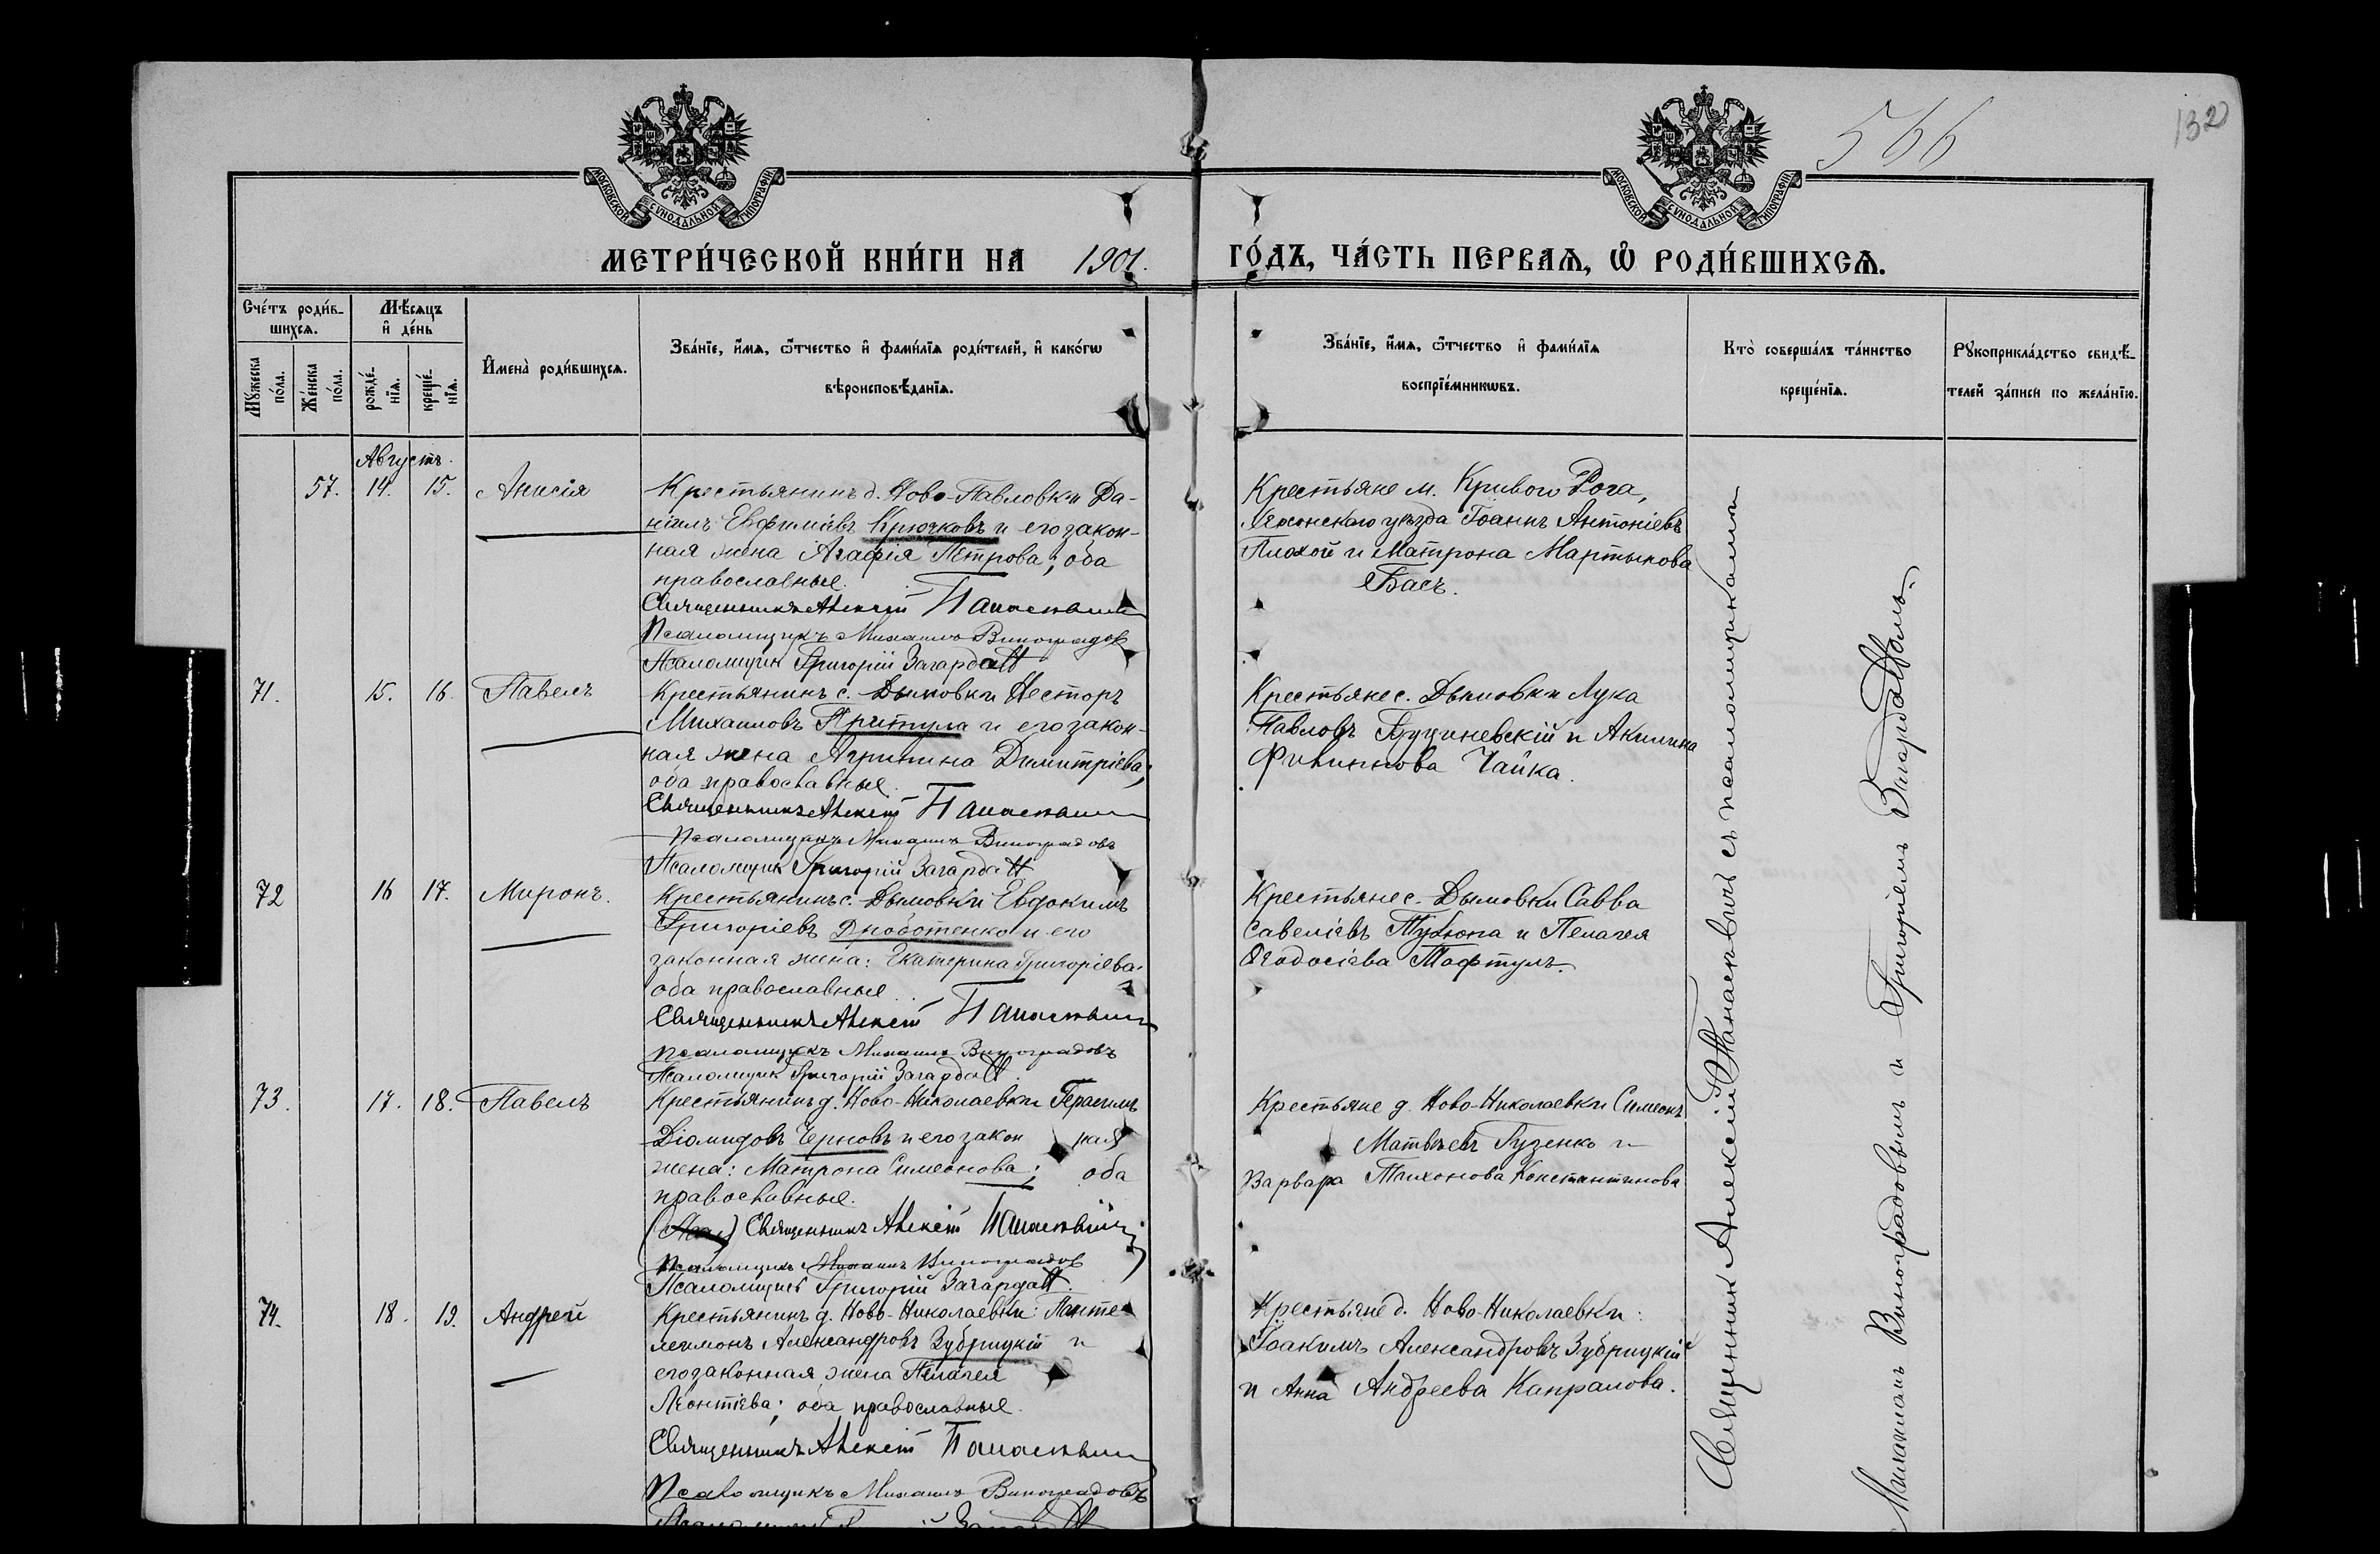 566
132
МОСКОВСКОЙ СУНОДАЛЬНОЙ ТИПОГРАФІИ
МОСКОВСКОЙ СУНОДАЛЬНОЙ ТИПОГРАФІИ
МЕТРИ́ЧЕСКОЙ КНИ́ГИ НА 1901.
ГО́ДЪ, ЧА́СТЬ ПЕРВАѦ, Ѡ РОДИ́ВШИХСѦ.
Сче́тъ роди́в-
шихсѧ.
Мꙋ́жеска
по́ла.
Же́нска
по́ла.
Мѣ́сѧцъ
и҆ де́нь
рожде́-
нїѧ.
креще́-
нїѧ.
И҆мена̀ роди́вшихсѧ.
Зва́нїе, и҆́мѧ, ѻ҆́тчество и҆ фами́лїѧ роди́телей, и҆ како́гѡ
вѣроисповѣ́данїѧ.
Зва́нїе, и҆́мѧ, ѻ҆́тчество и҆ фами́лїѧ
воспрїе́мникѡвъ.
Кто̀ соверша́лъ та́инство
креще́нїѧ.
Рꙋкоприкла́дство свидѣ́-
телей за́писи по жела́нїю.
Августъ.
57. 14. 15. Анисія
Крестьянинъ д. Ново-Павловки Да-
ніилъ Евфиміевъ Крючковъ и его закон-
ная жена Агафія Петрова; оба
православные.
Священникъ Алексій Панаскевич
Псаломщикъ Михаилъ Виноградов
Псаломщик Григорій Загардан
Крестьяне м. Кривого Рога,
Херсонскаго уѣзда Іоаннъ Антоніевъ
Плохой и Матрона Мартынова
Басъ.
71. 15. 16. Павелъ
Крестьянинъ с. Дымовки Несторъ
Михаиловъ Притула и его закон-
ная жена Агрипина Димитріева;
оба православные.
Священникъ Алексій Панаскевич
Псаломщикъ Михаилъ Виноградовъ
Псаломщик Григорій Загардан
Крестьяне с. Дымовки Лука
Павловъ и Акилина
Филиппова Чайка.
72 16 17. Миронъ.
Крестьянинъ с. Дымовки Евдокимъ
Григоріевъ Дроботенко и его
законная жена: Екатерина Григоріева.
оба православные
Священникъ Алексій Панаскевич
Псаломщикъ Михаилъ Виноградовъ
Псаломщик Григорій Загардан
Крестьяне с. Дымовки Савва
Савеліевъ и Пелагея
Ѳеодосіева Тафтулъ.
73. 17. 18. Павелъ
Крестьянинъ д. Ново-Николаевки Герасимъ
Діомидовъ Черновъ и его законная
жена: Матрона Симеонова; оба
православные.
Священникъ Алексій Панаскевич
Псаломщикъ Михаилъ Виноградов
Псаломщикъ Григорій Загардан.
Крестьяне д. Ново-Николаевки Симеонъ
Матвѣевъ Гузенко и
Варвара Тихонова Константинова
74. 18. 19. Андрей
Крестьянинъ д. Ново-Николаевки: Панте-
леимонъ Александровъ Зубрицкій и
его законная жена Пелагея
Леонтіева; оба православные.
Священникъ Алексій Панаскевич
Псаломщикъ Михаилъ Виноградовъ
Крестьяне д. Ново-Николаевки:
Іоакимъ Александровъ Зубрицкій
и Анна Андреева Капралова.
Священник Алексій Панаскевичъ съ псаломщиками
Михаиломъ Виноградовымъ и Григоріемъ Загарданомъ.